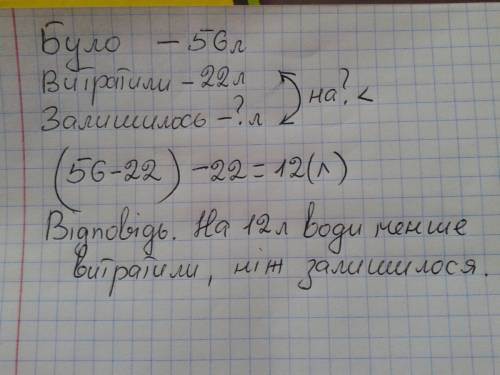 Було – 56л
Витратили – 22л
Залишилось – ? л
на ? <
(56-22) -22 = 12(л)
Відповідь. На 12л води менше
витратили, ніж залишилося.